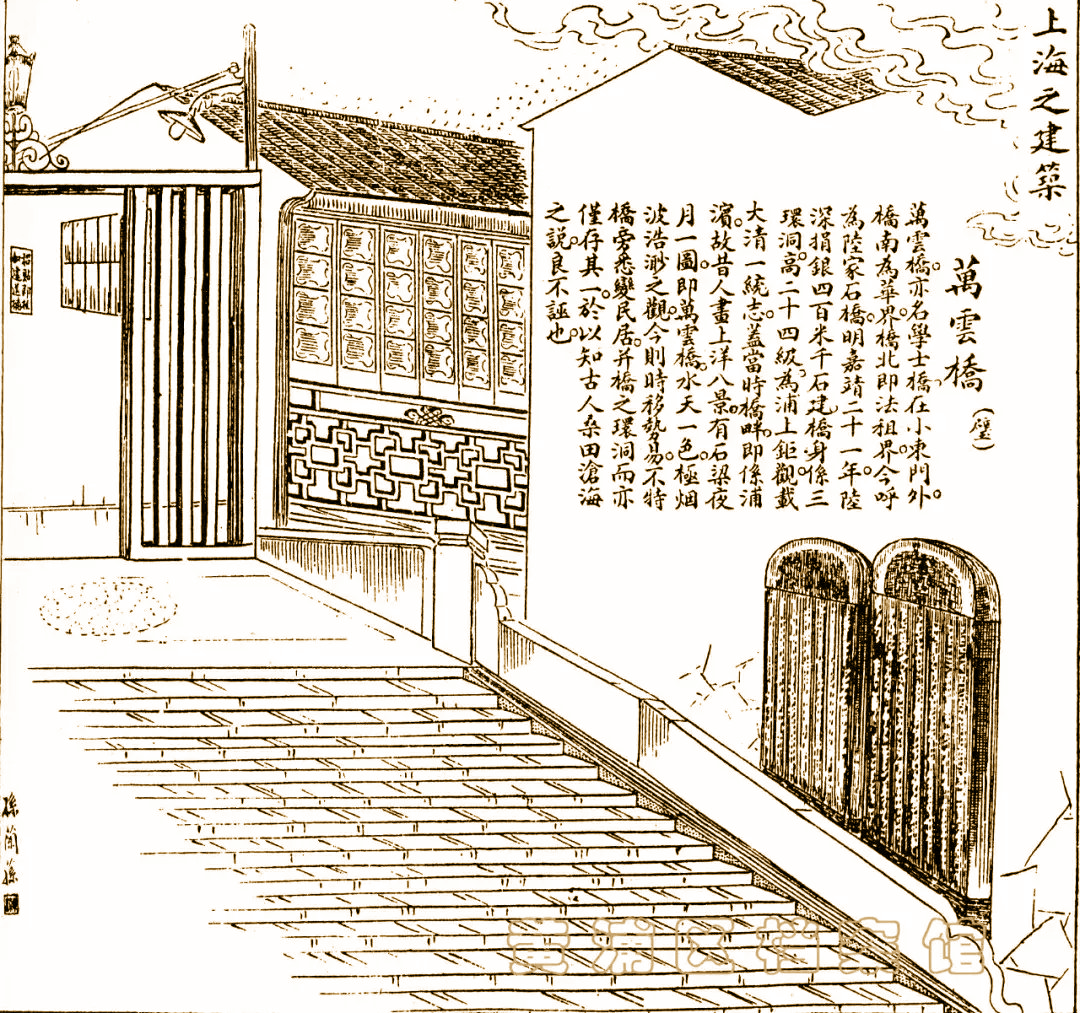 上海之建築
萬雲橋
(璧)
萬雲橋亦名學士橋在小東門外。
橋南為華界橋北即法租界今呼
為陸家石橋明嘉靖二十一年陸
深捐銀四百米千石建橋身係三
環洞高二十四級為浦上鉅觀載
大清一統志蓋當時橋畔即係浦
濱故昔人畫上洋八景有石梁夜
月一圖即萬雲橋水天一色極烟
波浩渺之觀今則時移勢易不特
橋旁悉變民居并橋之環洞而亦
僅存其一於以知古人桑田滄海
之說良不誣也。
孫蘭蓀
黄浦区档案馆